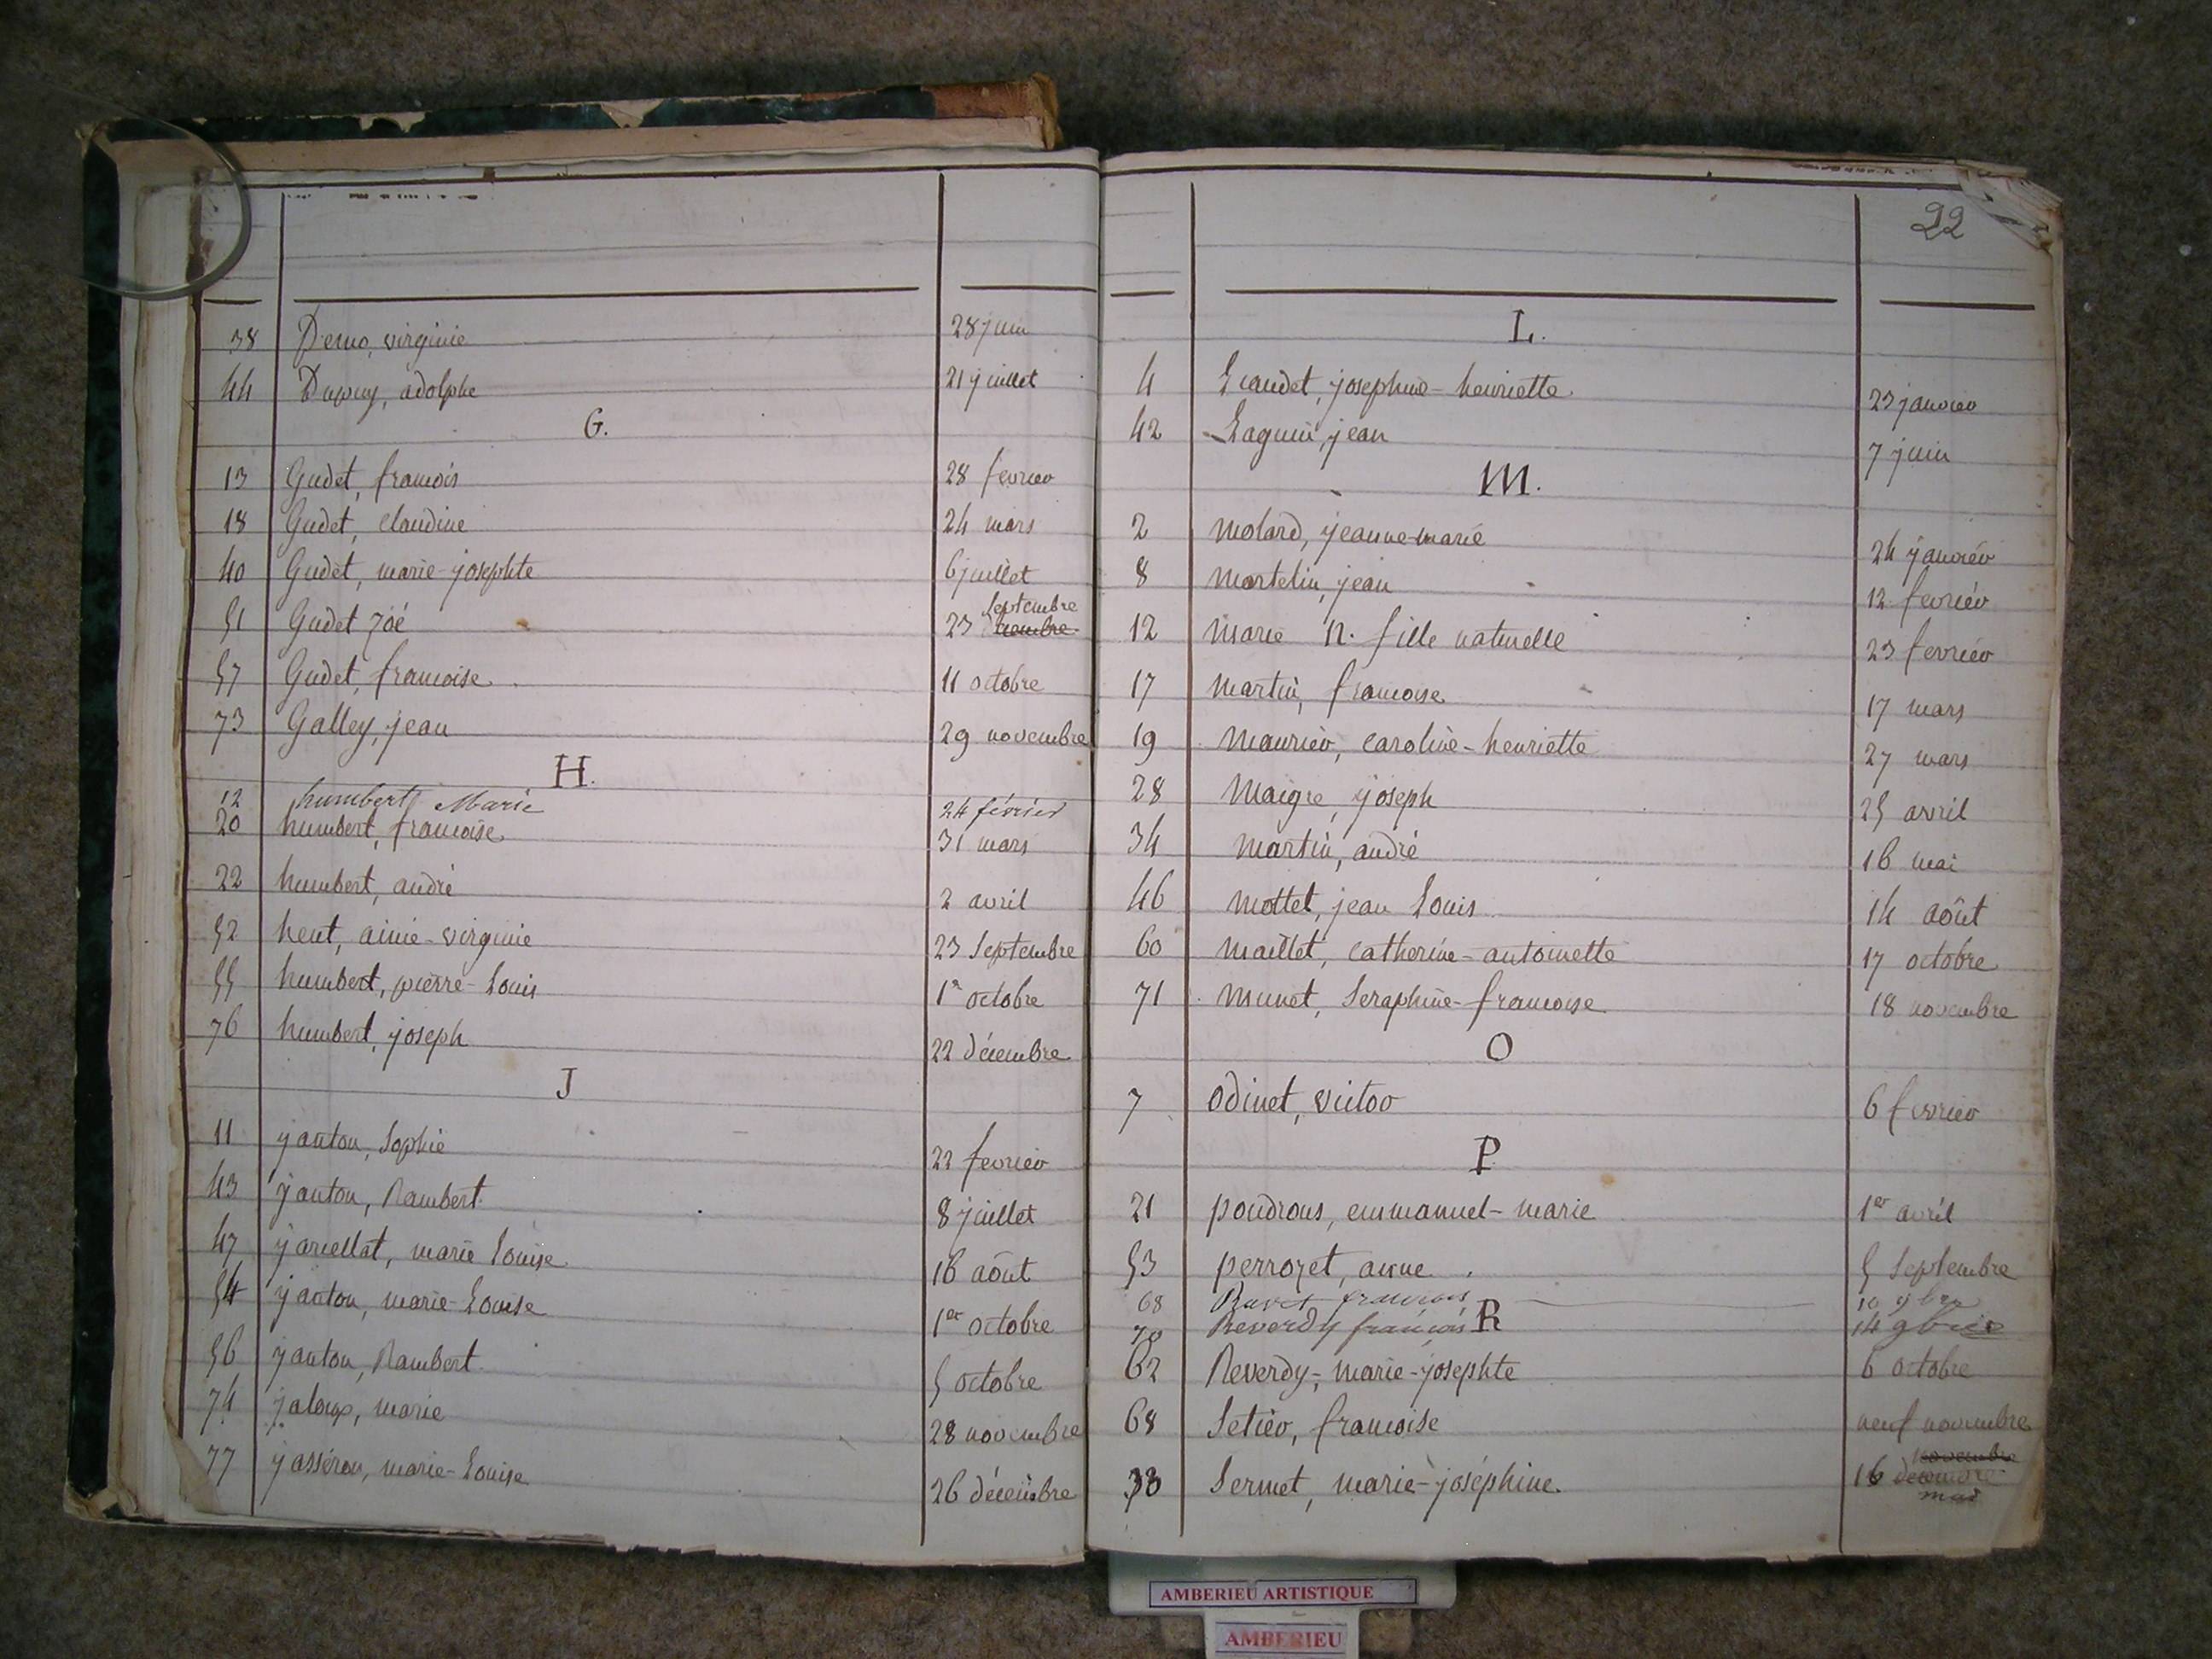 38 Demo, virginie 28 juin
44 Dupuy, adolphe 21 juillet
G.
13 Gudet, francois 28 fevrier
18 Gudet, claudine 24 mars
40 Gudet, marie-josephte 6 juillet
51 Gudet Zoé 23 septembre
57 Gudet, francoise 11 octobre
73 Galley, jean 29 novembre
H.
12 humbert Marie 24 février
20 humbert, francoise 31 mars
22 humbert, andré 2 avril
52 hent, aimé-virginie 23 Septembre
55 humbert, pierre-Louis 1er octobre
76 humbert, joseph 22 décembre
J
11 janton, Sophie 22 fevrier
43 janton, Rambert 8 juillet
47 jarcellat, marie Louise 16 août
54 janton, marie-Louise 1er octobre
56 janton, Rambert 5 octobre
74 jaloux, marie 28 novembre
77 jasséron, marie-Louise 26 décembre
22
L.
4 Liaudet, josephine-henriette 23 janvier
42 Laguin, jean 7 juin
M.
2 Molard, jeanne-marie 24 janvier
8 Martelin, jean 12 fevrier
12 Marie N. fille naturelle 23 fevrier
17 Martin, francoise 17 mars
19 Maurier, caroline-henriette 27 mars
28 Maigre, joseph 25 avril
34 Martin, andré 16 mai
46 Mottet, jean Louis 14 août
60 Maillet, catherine-antoinette 17 octobre
71 Munet, Seraphine-francoise 18 novembre
O
7 Odinet, victor 6 fevrier
P
21 poudrous, emmanuel-marie 1er avril
53 perrozet, anne 5 Septembre
68 Ravet francois 10 9bre
70 Reverdy francois R 14 9bre
62 Reverdy, marie-josephte 6 octobre
68 Setier, francoise neuf novembre
38 Sermet, marie-joséphine. 16 mai
AMBERIEU ARTISTIQUE
AMBERIEU